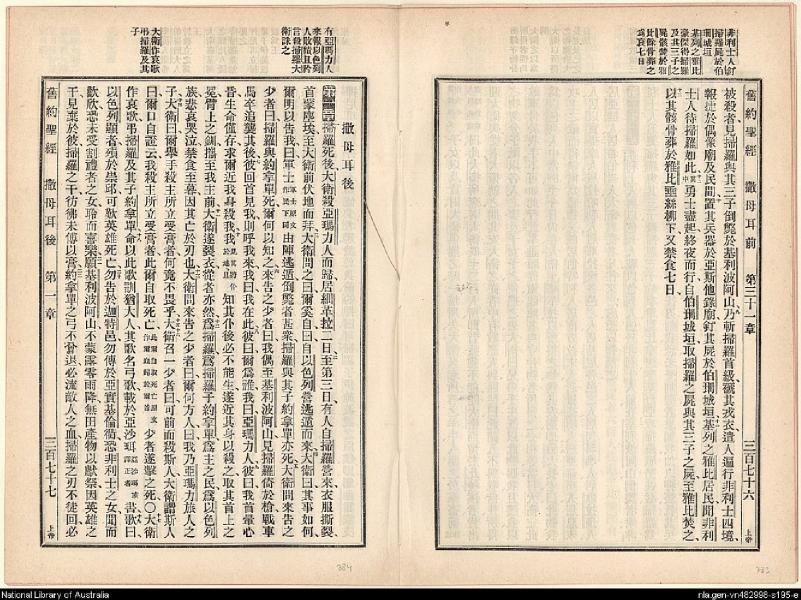 非利士人釘
掃羅屍於伯
珊城垣
基列之雅比
及其三子之
為哀七日
舊約聖經 撒母耳前 第三十一章 三百七十六 上帝
被殺者見掃羅與其三子倒斃於基利波阿山乃斬掃羅首級褫其戎衣遣人遍行非利士四境
報捷於偶像廟及民間置其兵器於亞斯他錄廟釘其屍於伯珊城垣基列之雅比居民聞非利
士人待掃羅如此其中勇士盡起終夜而行自伯珊城垣取掃羅之屍與其三子之屍至雅比焚之
以其骸骨葬於雅比垂絲柳下又禁食七日
有亞瑪力人
來報以色列
人敗績且矜
言殺掃羅大
衛誅之
大衛作哀歌
弔掃羅及其
子
撒母耳後
掃羅死後大衛殺亞瑪力人而歸居細革拉二日至第三日有人自掃羅營來衣服撕裂
首蒙塵埃至大衛前伏地而拜大衛問之曰爾奚自曰自以色列營逃遁而來大衛曰其事如何
爾明以告我曰軍士由陣逃遁倒斃者甚衆掃羅與其子約拿單亦死大衛問來告之
少者曰掃羅與約拿單死爾何以知之來告之少者曰我偶至基利波阿山見掃羅倚於槍戰車
馬卒追襲其後彼回首見我則呼我來我曰我在此彼曰爾爲誰我曰亞瑪力人彼曰我首暈心
昏生命僅存求爾近我身殺我我知其仆後必不能生遂近其身以殺之取其首上之
冕臂上之釧攜至我主前大衛遂裂衣從者亦然爲掃羅爲掃羅子約拿單爲主之民爲以色列
族悲哀哭泣禁食至暮因其亡於刃也大衛問來告之少者曰爾何方人曰我乃亞瑪力旅人之
子大衛曰爾舉手殺主所立受膏者何竟不畏乎大衛召一少者曰可前而殺斯人大衛謂斯人
曰爾口自證云我殺主所立受膏者此爾自取死亡少者遂擊之死〇大衛
作哀歌弔掃羅及其子約拿單命以此歌訓猶大人其歌名弓歌載於亞沙珥書歌曰
以色列顯者殞於崇邱可歎英雄死亡勿告於迦特邑勿傳於亞實基倫衢恐非利士之女聞而
歡欣恐未受割禮者之女聆而喜樂願基利波阿山不蒙露零雨降無田產物以獻祭因英雄之
干見棄於彼掃羅之干彷彿未傅以膏約拿單之弓不曾退必流敵人之血掃羅之刃不徒回必
舊約聖經 撒母耳後 第一章 三百七十七 上帝
384
383
National Library of Australia
nla.gen-vn482998-s195-e